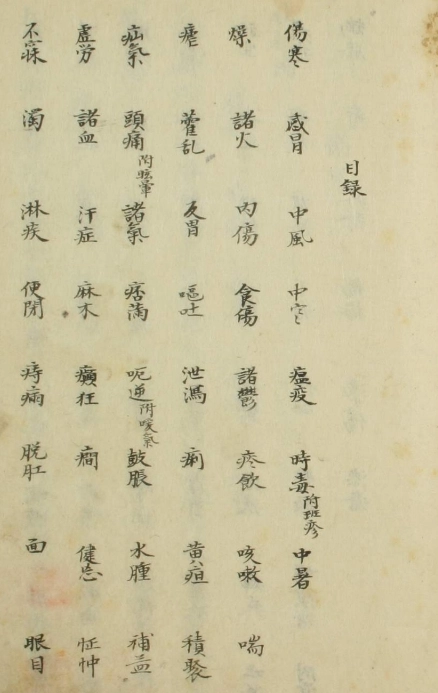 目録
傷寒 感冒 中風 中寒 瘟疫 時毒附班疹 中暑
燥 諸火 内傷 食傷 諸鬱 痰飲 咳嗽 喘
瘧 藿乱 反胃 嘔吐 泄瀉 痢 黄疸 積聚
疝氣 頭痛附眩暈 諸氣 痞満 呃逆附噯氣 鼓脹 水腫 補益
虚労 諸血 汗症 麻木 癲狂 癇 健忘 怔忡
不寐 濁 淋疾 便閉 痔漏 脱肛 面 眼目